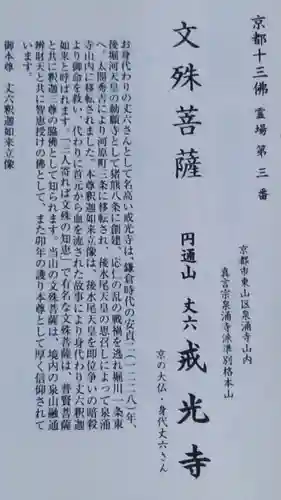 京都十三佛 霊場 第三番
京都市東山区泉涌寺山内
真言宗泉涌寺派準別格本山
文殊菩薩 円通山 丈六 戒光寺
京の大仏・身代丈六さん
お身代わりの丈六さんとして名高い戒光寺は、鎌倉時代の安貞二(一二二八)年、
後堀河天皇の勅願寺として猪熊八条に創建、応仁の乱の戦禍を逃れ堀川一条東
へ。太閤秀吉により河原町三条に移転され、後水尾天皇の思召しによって泉涌
寺山内に移転されました。本尊釈迦如来立像は、後水尾天皇を即位争いの暗殺
より御命を救い、代わりに首元から血を流された故事により身代わり丈六釈迦
如来と呼ばれます。「三人寄れば文殊の知恵」で有名な文殊菩薩は、普賢菩薩
と共に釈迦三尊の脇佛として知られます。当山の文殊菩薩は、境内の泉山融通
辨財天と共に智恵授けの佛として、また卯年の護り本尊として厚く信仰されて
います。
御本尊 丈六釈迦如来立像